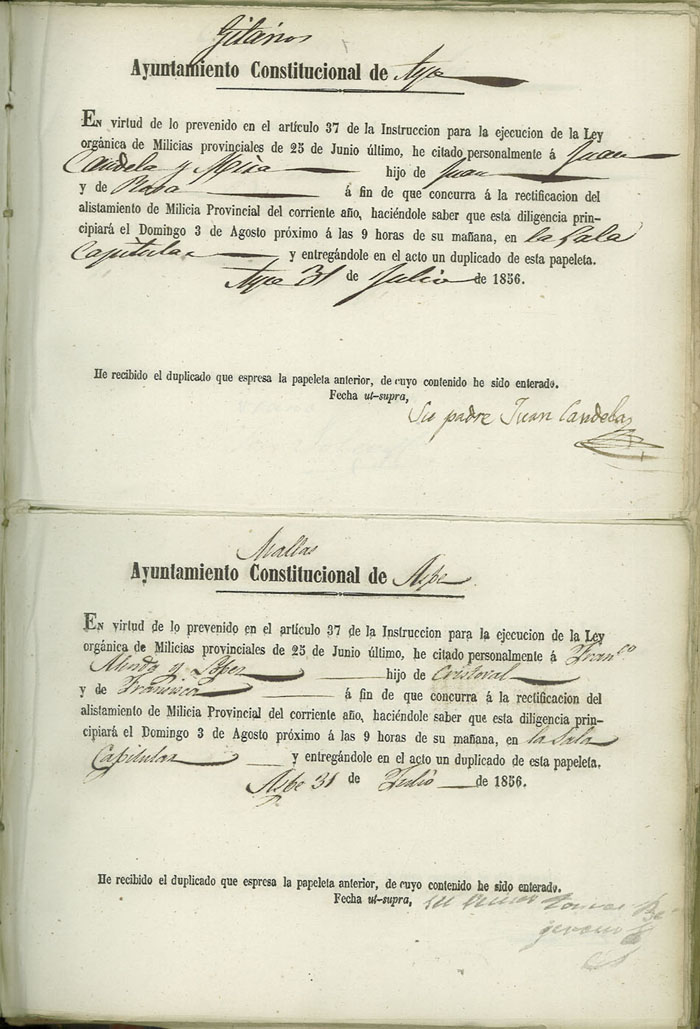 Gitanos
Ayuntamiento Constitucional de Aspe
En virtud de lo prevenido en el artículo 37 de la Instruccion para la ejecucion de la Ley
orgánica de Milicias provinciales de 25 de Junio último, he citado personalmente á Juan
Candela y Mira hijo de Juan
y de Rosa á fin de que concurra á la rectificacion del
alistamiento de Milicia Provincial del corriente año, haciéndole saber que esta diligencia prin-
cipiará el Domingo 3 de Agosto próximo á las 9 horas de su mañana, en la Sala
Capitular y entregándole en el acto un duplicado de esta papeleta.
Aspe 31 de Julio de 1856.
He recibido el duplicado que espresa la papeleta anterior, de cuyo contenido he sido enterado.
Fecha ut-supra,
Su padre Juan Candelas
Mallas
Ayuntamiento Constitucional de Aspe
En virtud de lo prevenido en el artículo 37 de la Instruccion para la ejecucion de la Ley
orgánica de Milicias provinciales de 25 de Junio último, he citado personalmente á Franco
y Lopez hijo de Cristoval
y de Francisca á fin de que concurra á la rectificacion del
alistamiento de Milicia Provincial del corriente año, haciéndole saber que esta diligencia prin-
cipiará el Domingo 3 de Agosto próximo á las 9 horas de su mañana, en la Sala
Capitular y entregándole en el acto un duplicado de esta papeleta.
Aspe 31 de Julio de 1856.
He recibido el duplicado que espresa la papeleta anterior, de cuyo contenido he sido enterado.
Fecha ut-supra,